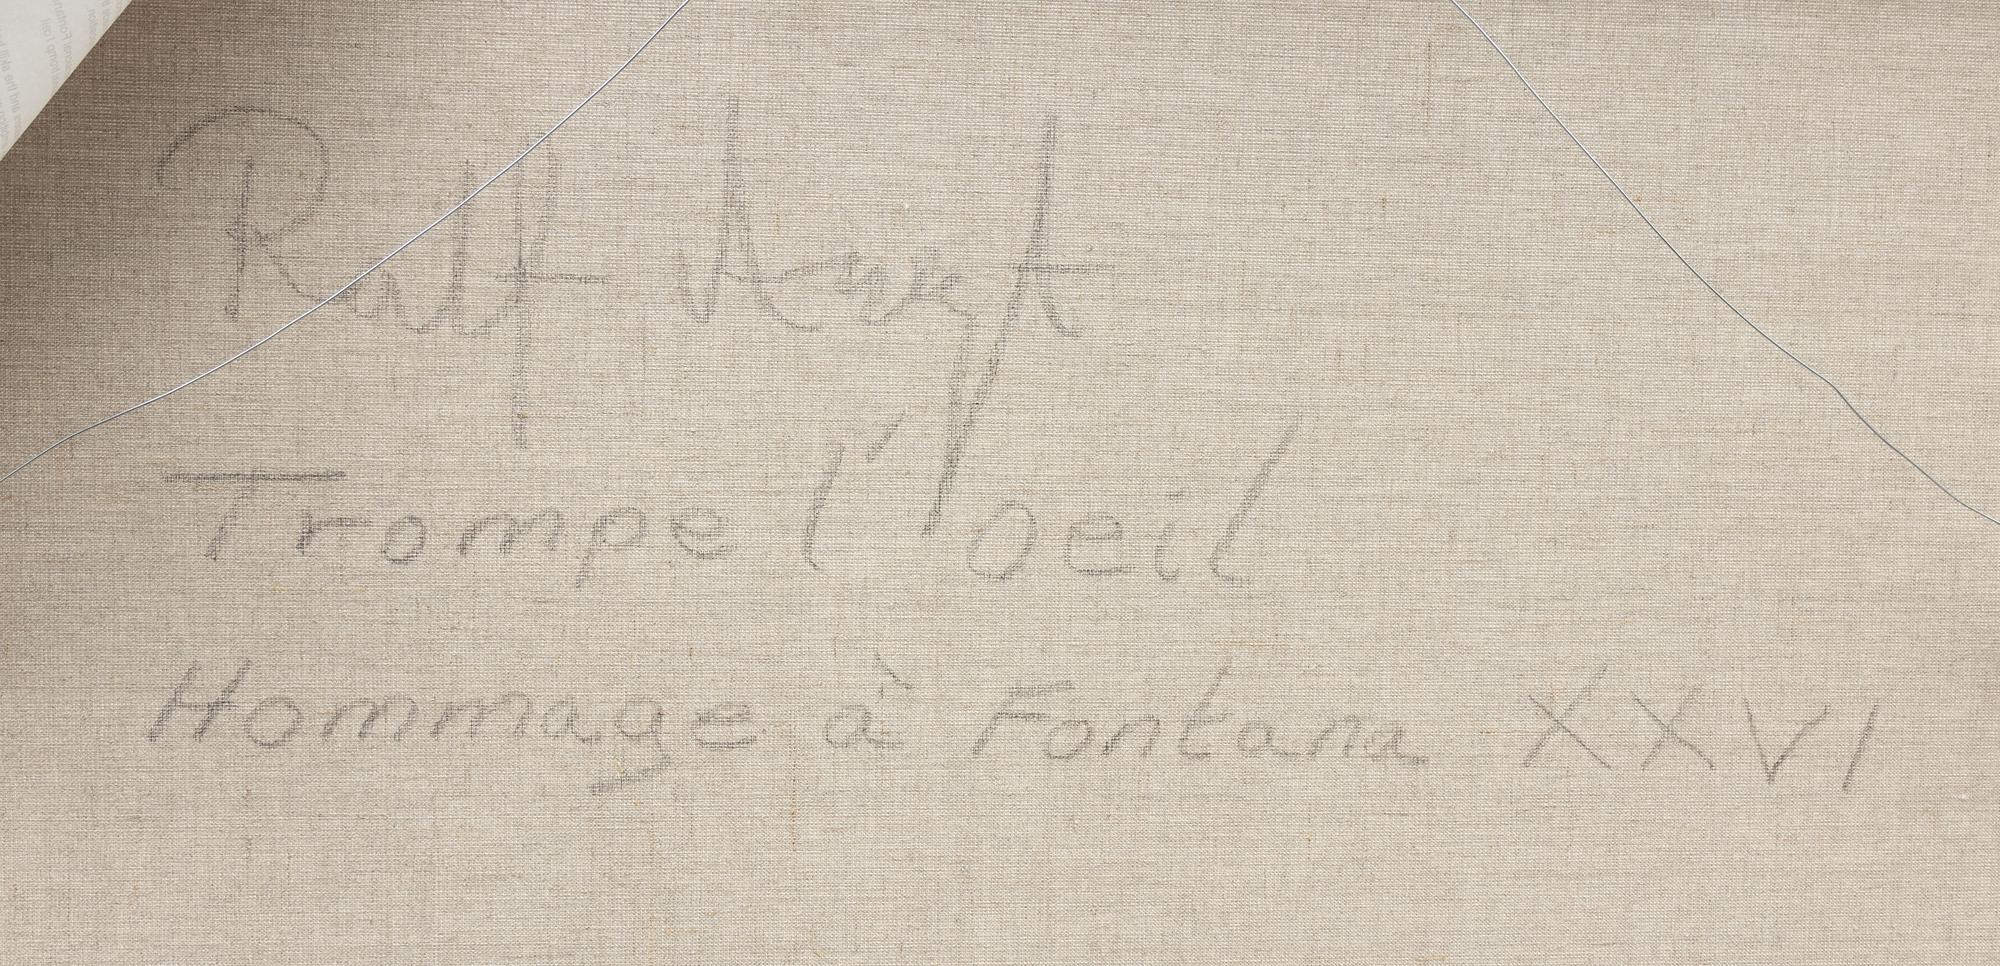 Ralf
Trompe l'oeil
Hommage à Fontana XXVI